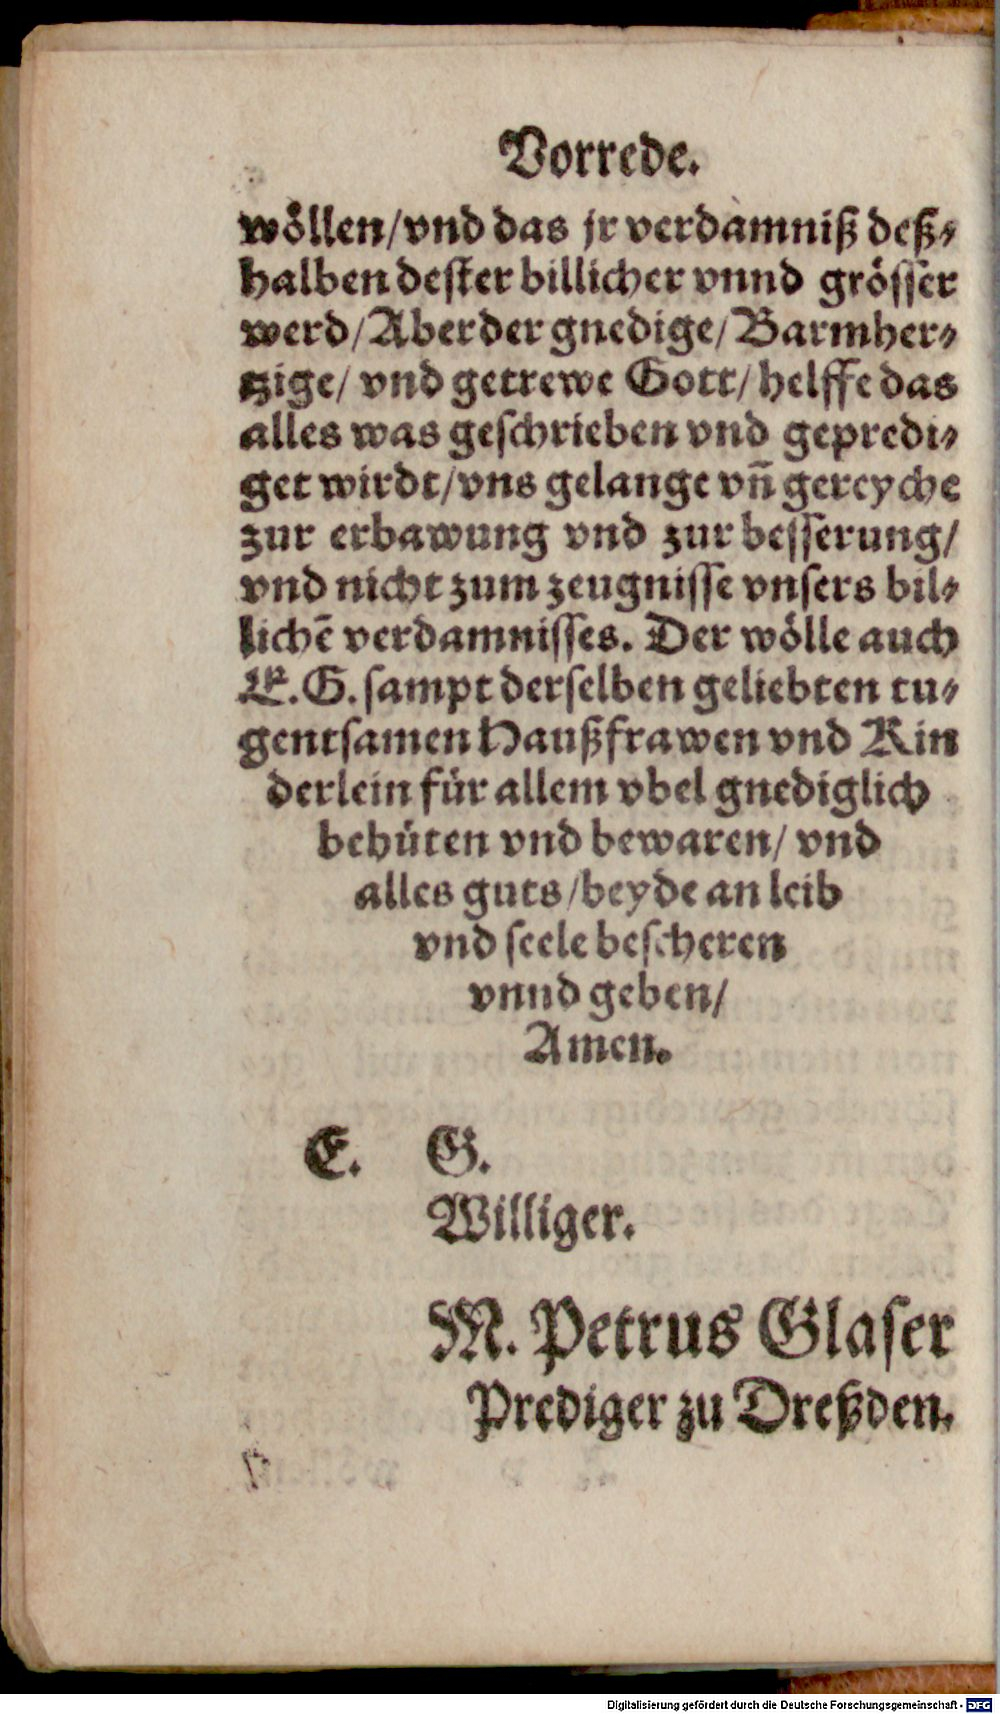 Vorrede.
wöllen/vnd das jr verdamniß deß⸗
halben dester billicher vnnd grösser
werd/Aber der gnedige/Barmher⸗
tzige/ vnd getrewe Gott/helffe das
alles was geschrieben vnd gepredi⸗
get wirdt/vns gelange vñ gereyche
zur erbawung vnd zur besserung/
vnd nicht zum zeugnisse vnsers bil⸗
lichē verdamnisses. Der wölle auch
E.G.sampt derselben geliebten tu⸗
gentsamen Haußfrawen vnd Kin
derlein für allem vbel gnediglich
behüten vnd bewaren/ vnd
alles guts/beyde an leib
vnd seele bescheren
vnnd geben/
Amen.
E. G.
Williger.
M. Petrus Glaser
Prediger zu Dreßden.
Digitalisierung gefördert durch die Deutsche Forschungsgemeinschaft - DFG